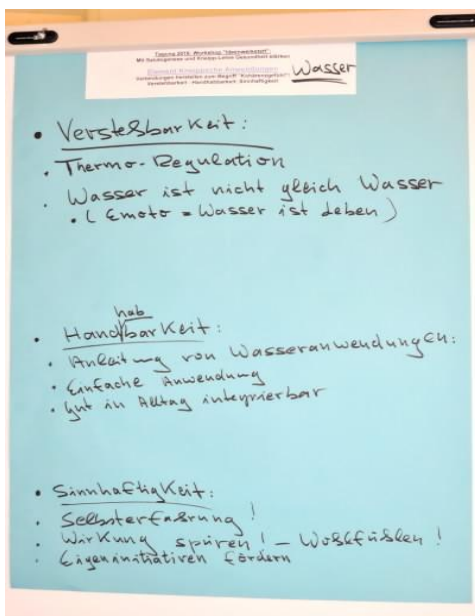 Tagung 2019, Workshop "Ideenwerkstatt":
Mit Salutogenese und Kneipp Gesundheit stärken
Element Kneippsche Anwendungen
Verbindungen herstellen zum Begriff "Kohärenzgefühl":
Verstehbarkeit - Handhabbarkeit - Sinnhaftigkeit
Wasser
• Verstehbarkeit:
• Thermo-Regulation
• Wasser ist nicht gleich Wasser
• (Emoto = Wasser ist Leben)
hab
• Handbarkeit:
• Anleitung von Wasseranwendungen:
• Einfache Anwendung
• Gut in Alltag integrierbar
• Sinnhaftigkeit:
• Selbsterfahrung!
• Wirkung spüren! - Wohlfühlen!
• Eigeninitiativen fördern